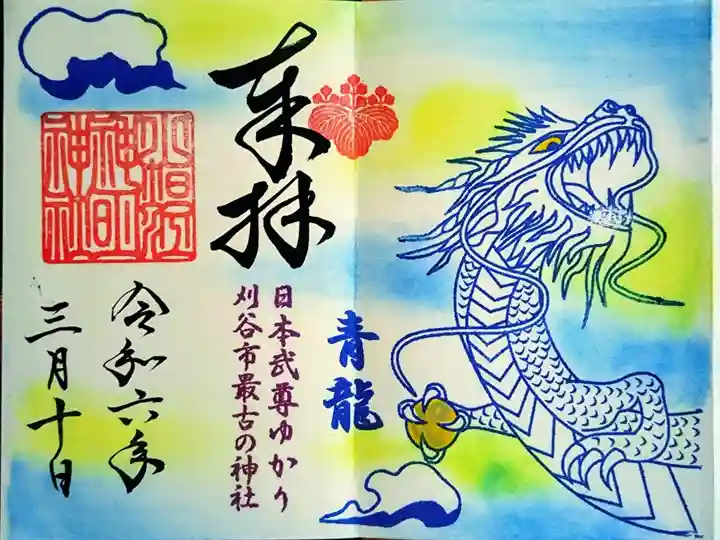 奉拝
青龍
日本武尊ゆかり
刈谷市最古の神社
小垣江
神明
神社
令和六年
三月十日